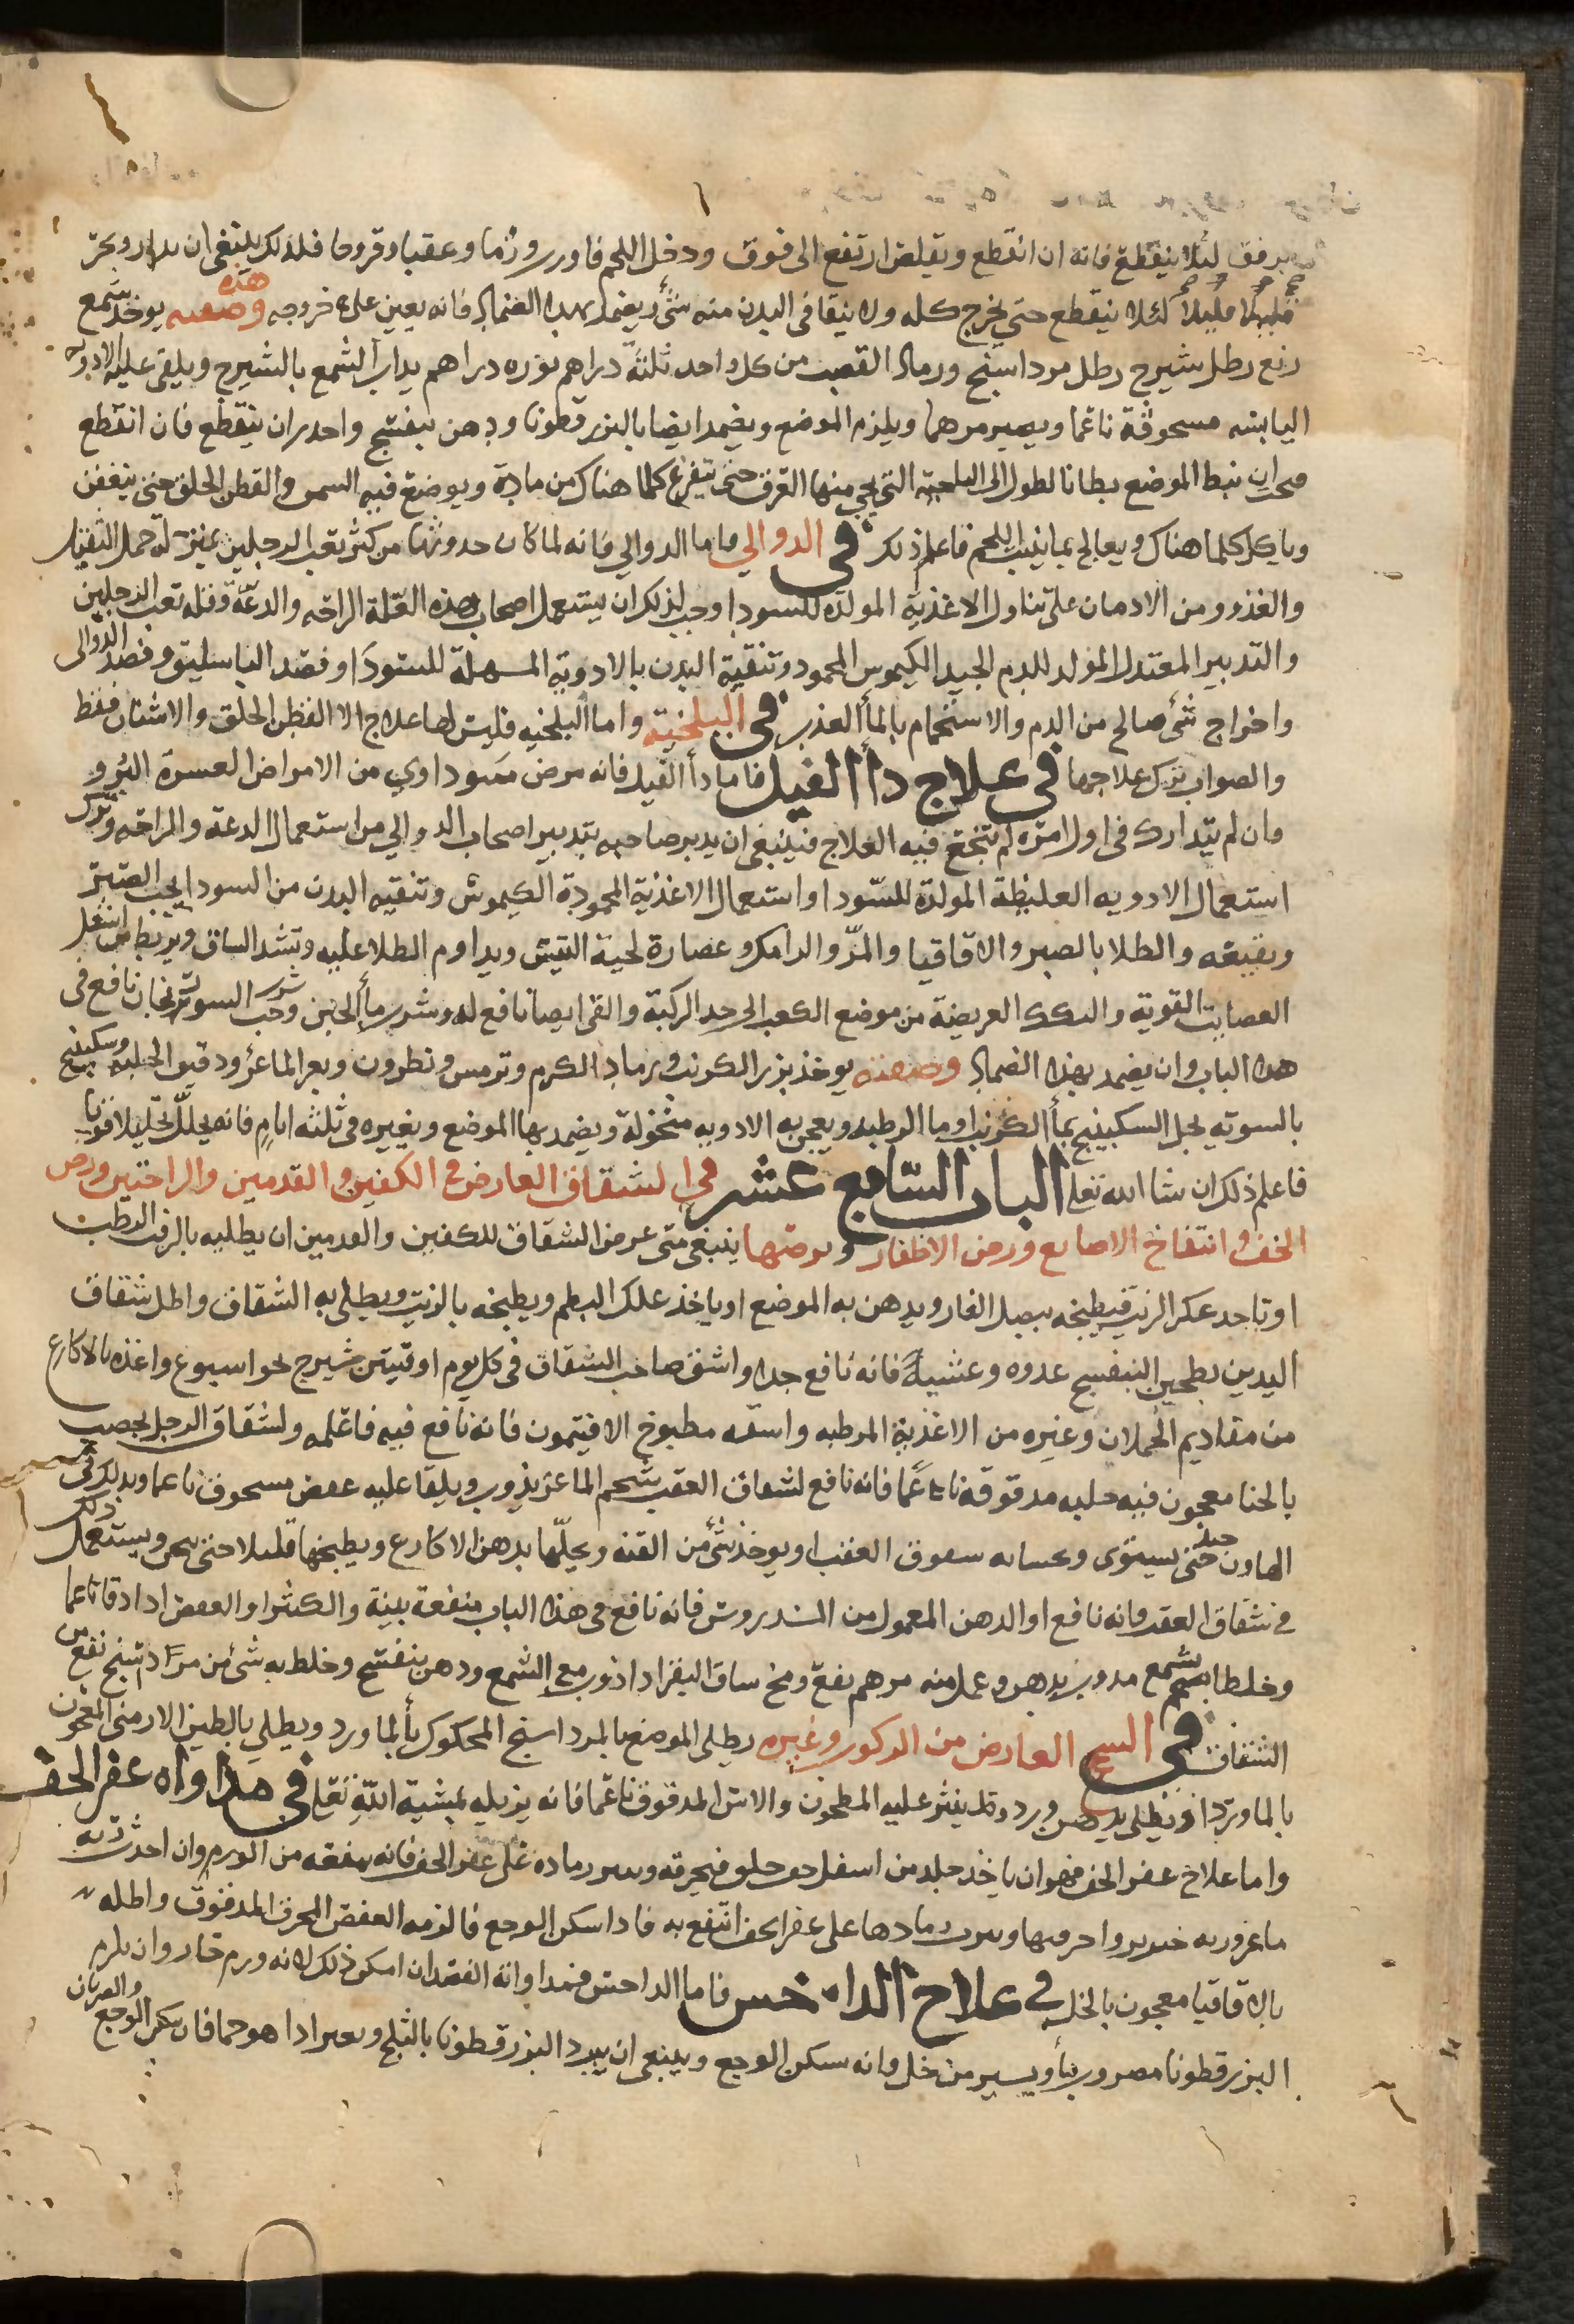 برفق ليلا ينقطع فانه ان انقطع وتقلص ارتفع الى فوق ودخل اللحم فاورى ورما وعقبا وقروحا فلذلك ينبغى ان يدار ويجر
قليلا قليلا لئلا ينقطع حتى يخرج كله ولا يبقا فى البدن منه شئ ويضمد بهذا الضماد فانه يعين على خروجه وهذه صفته يوخذ شمع
ربع رطل شيرج رطل مرداسنج ورماد القصب من كل واحد ثلثة دراهم نوره دراهم يداب الشمع بالشيرج ويلقى عليه الادويه
اليابسه مسحوقة ناعما ويصير مرهما ويلزم الموضع ويضمد ايضا بالبزرقطونا ودهن بنفسج واحدر ان ينقطع فان انقطع
فيجب ان نبط الموضع بطا نا لطول الى الناحية التى يجى منها العرق حتى يتفرغ كلما هناك من مادة ويوضع فيه السمن والقطن الخلق حتى يتعفن
وياكل كلما هناك ويعالج بما ينبت اللحم فاعلم ذلك في الدوالي فاما الدوالي فانه لما كان حدوثها من كثر تعب الرجلين بمنزلة حمل الثقيل
والغذو ومن الادمان على تناول الاغذية المولدة للسودا وجب لذلك ان يستعمل اصحاب هذه العلة الراحه والدعة وقله تعب الرجلين
والتدبير المعتدل المولد للدم الجيد الكيموس المحمود وتنقية البدن بالادوية المسهلة للسودا وفصد الباسليق وفصد الدوالى
واخراج شئ صالح من الدم والاستحمام بالماء العذب في البلخية واما البلخيه فليس لها علاج الا القطن الخلق والاشنان فقط
والصواب ترك علاجها في علاج دأ الفيل فاما دأ الفيل فانه مرض سوداوي من الامراض العسرة البرؤ
وان لم يتدارك فى اول امره لم ينجع فيه العلاج فينبغى ان يدبر صاحبه بتدبير اصحاب الدوالي من استعمال الدعة والراحه وترك
استعمال الادويه الغليظة المولدة للسودا واستعمال الاغذية المحمودة الكيموس وتنقيه البدن من السودا بحب الصبر
ونقيعه والطلا بالصبر والاقاقيا والمر والرامك وعصارة لحية التيس ويداوم الطلا عليه وتشد الساق ويربط من اسفل
العصايب القوية والتكك العريضة من موضع الكعب الى حد الركبة والقى ايضا نافع له وشرب ماء الجبن وشرب حب السورنجان نافع فى
هذا الباب وان يضمد بهذا الضماد وصفته يوخذ بزر الكرنب ورماد الكرم وترمس ونطرون وبعر الماعز ودقيق الحلبه وسكبينج
بالسويه يحل السكبينج بماء الكرنب او ما الرطبه ويعجن به الادويه منخولة ويضمد بها الموضع ويغيره فى ثلثه ايام فانه يحلل تحليلا قويا
فاعلم ذلك ان شا الله تعلى الباب السابع عشر في الشقاق العارض فى الكفين والقدمين والراحتين ورض
الخف وانتفاخ الاصابع ورض الاظفار وبرصها ينبغى متى عرض الشقاق للكفين والقدمين ان يطليه بالزفت الرطب
او تاخد عكر الزيت فيطبخه ببصل الفار ويدهن به الموضع او ياخذ علك البطم ويطبخه بالزيت ويطلى به الشقاق واطل شقاق
اليدين بطحين البنفسج غدوه وعشية فانه نافع جدا واسق صاحب الشقاق فى كل يوم اوقيتين شيرج نحو اسبوع واغذه بالاكارع
من مقاديم الحملان وغيره من الاغذية المرطبه واسقه مطبوخ الافتيمون فانه نافع فيه فاعلمه ولشقاق الرجل يخضب
بالحنا معجون فيه حلبه مدقوقه ناعما فانه نافع لشقاق العقب شحم الماعز يذوب ويلقا عليه عفص مسحوق ناعما ويدلك فى
الهاون حتى يستوى وعسا به سعوق العقب او يوخذ شئ من القنه ويحلها بدهن الاكارع ويطبخها قليلا حتى يثخن ويستعمل ذلك
في شقاق العقب فانه نافع او الدهن المعمول من السندروس فانه نافع فى هذا الباب منفعة بينة والكثيرا والعفص اذا دقا ناعما
وخلطا بشمع مدوب بدهن وعمل منه مرهم نفع ومخ ساق البقر اذا ذوب مع الشمع ودهن بنفسج وخلط به شئ من مرداسنج نفع من
الشقاق في السحج العارض من الركوب وغيره يطلى الموضع بالمرداسنج المحكوك بالماورد ويطلى بالطين الارمنى المعجون
بالماورد او يطلى بدهن ورد وتلد ينثر عليه المطحون والاس المدقوق ناعما فانه يزيله بمشية الله تعلى في مداواه عقر الخف
واما علاج عقر الخف فهو ان ياخذ جلد من اسفل خف خلق فيحرقه وينثر رماده على عقر الخف فانه ينفعه من الورم وان احدث رئه
ماعز وريه خنزير واحرقها ونثرت رمادها على عقر الخف انتفع به فاذا سكن الوجع فالزمه العفص المحرق المدقوق واطله
بالاقاقيا معجون بالخل في علاج الداحس فاما الداحس فمداواته الفصد ان امكن ذلك لانه ورم حار وان يلزم
البزرقطونا مضروب بماء ويسير من خل فانه يسكن الوجع وينبغى ان يبرد البزرقطونا بالثلج ويغير اذا هو حما فان سكن الوجع والضربان